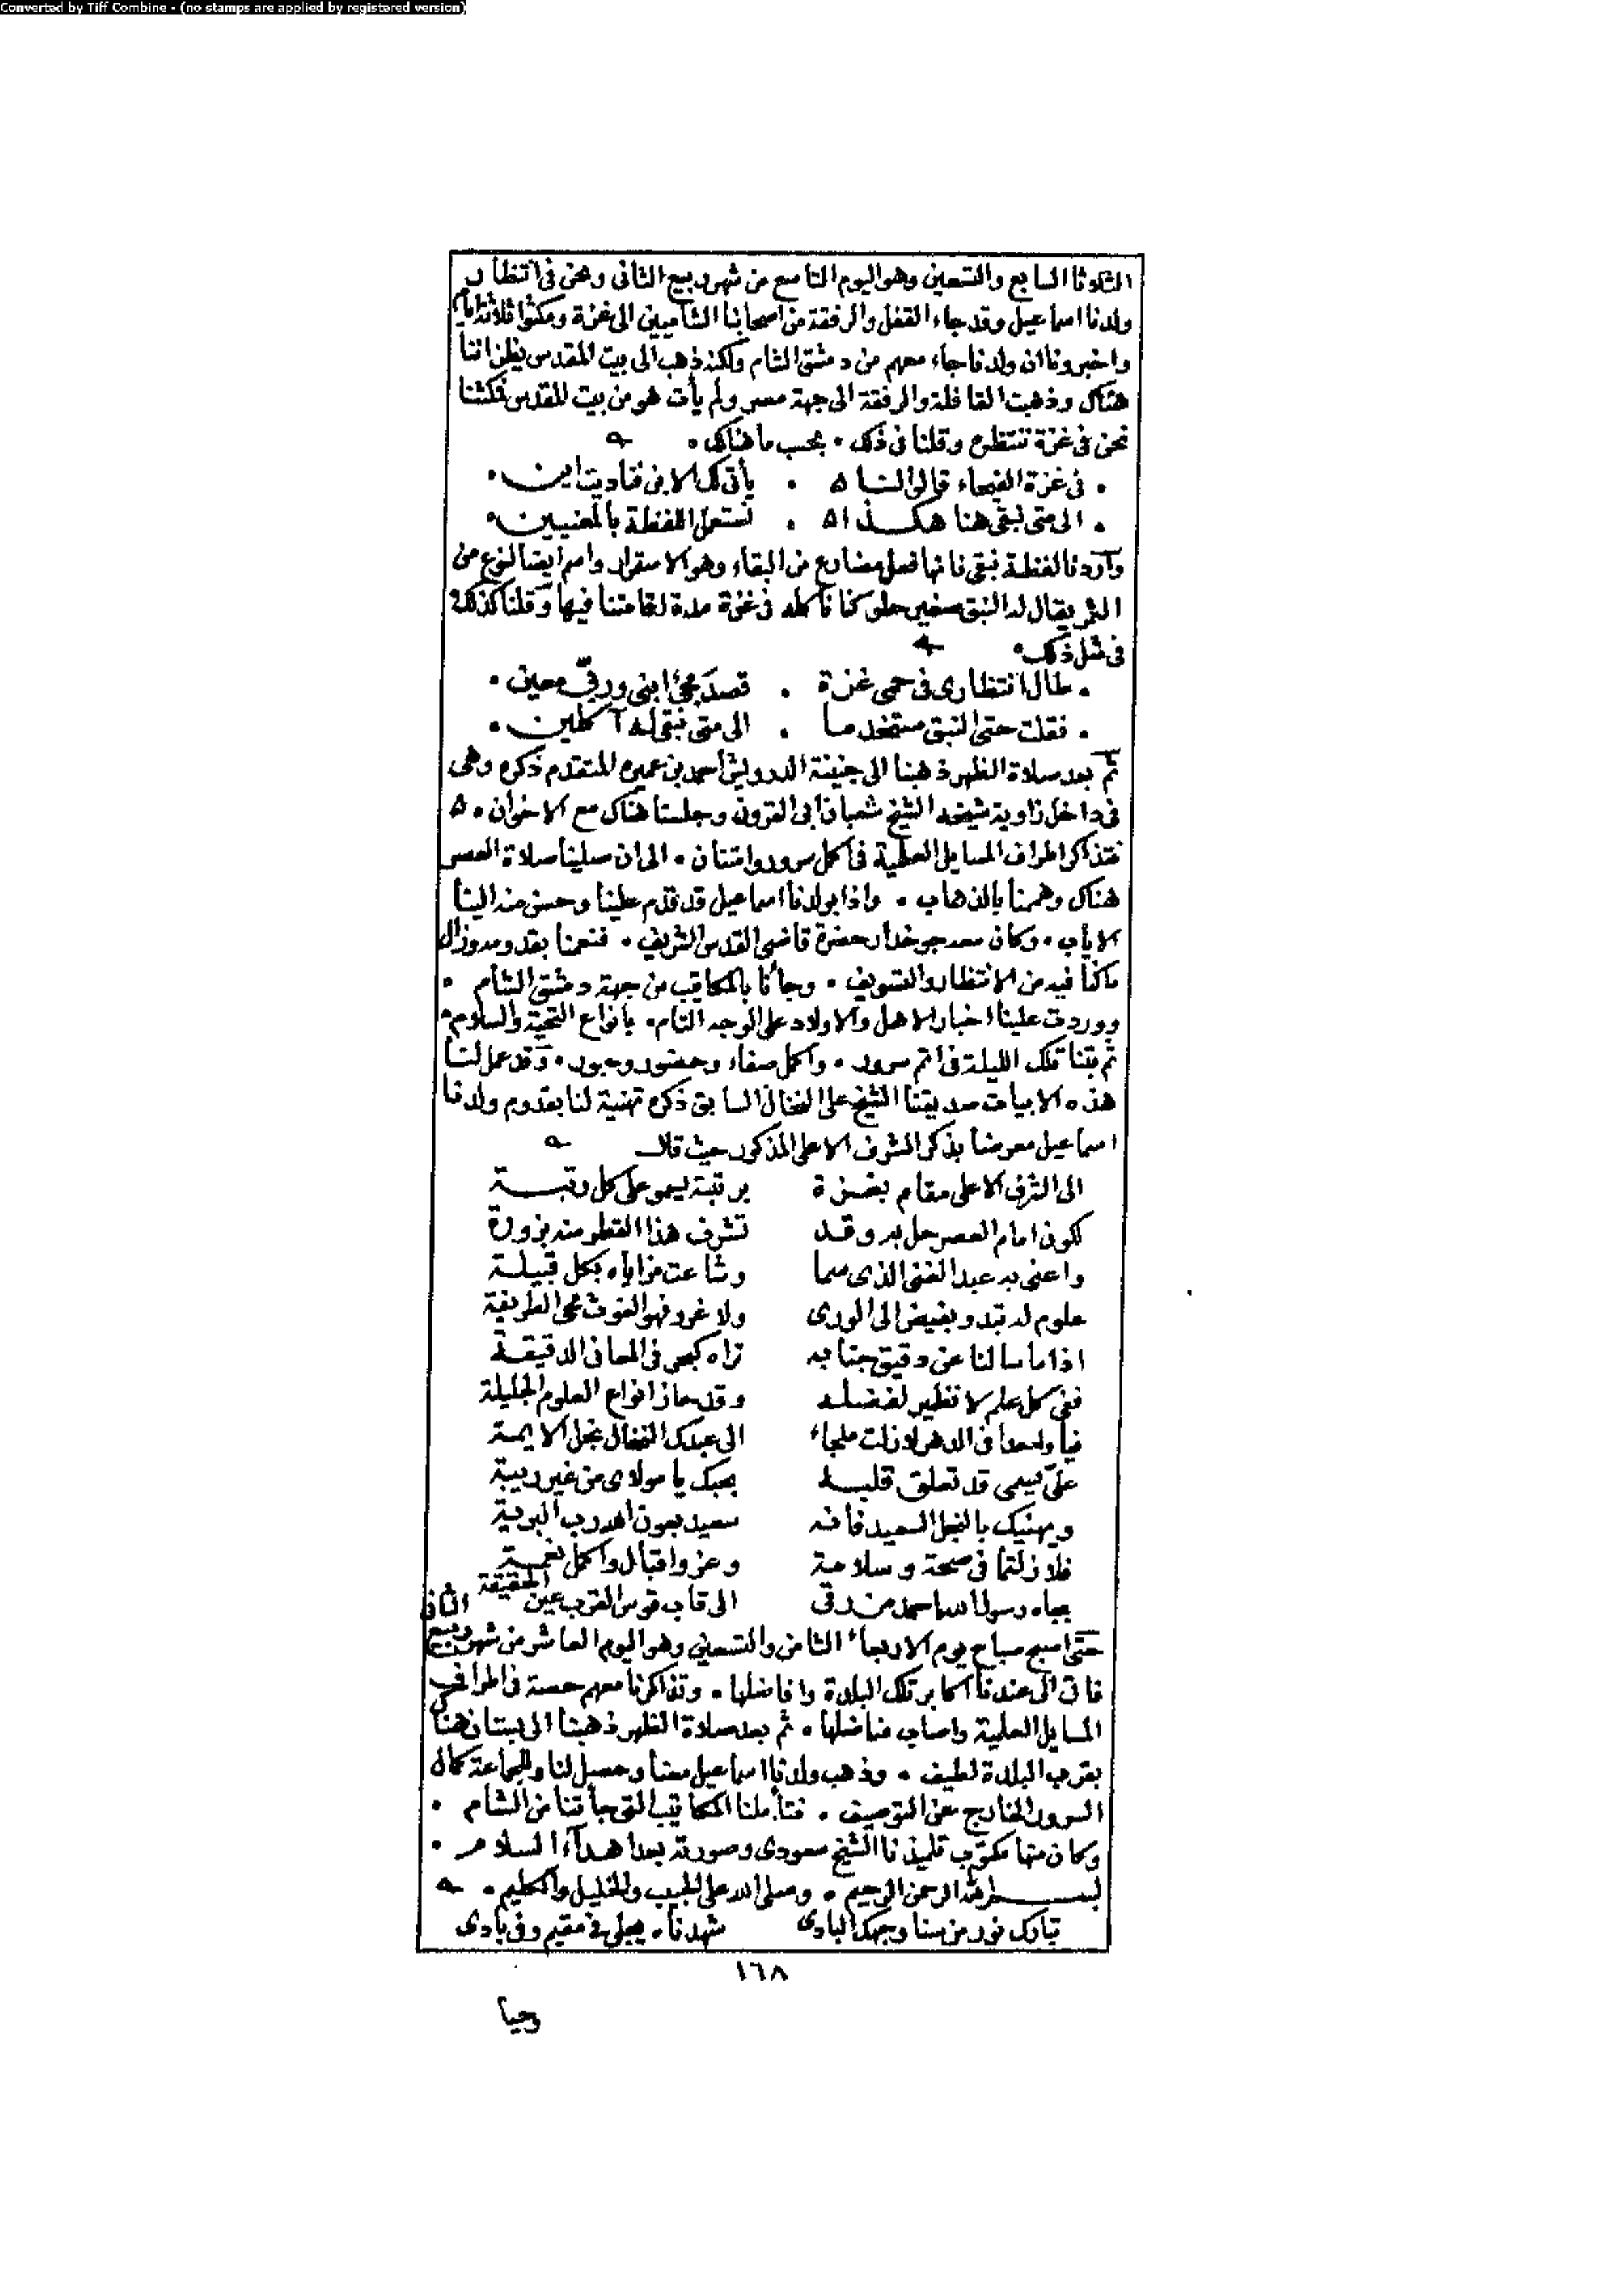 Converted by Tiff Combine - (no stamps are applied by registered version)
الثلاثا السابع والتسعين وهو اليوم التاسع من شهر ربيع الثانى ونحن فى انتظار
ولدنا اسماعيل وقد جاء القفل والرفقة من اصحابنا الشاميين الى غزة ومكثوا ثلاثة ايام
واخبرونا ان ولدنا جاء معهم من دمشق الشام ولكنه ذهب الى بيت المقدس يظن اننا
هناك وذهبت القافلة والرفقة الى جهة مصر ولم يأت هو من بيت المقدس فمكثنا
نحن فى غزة ننتظره وقلنا فى ذلك • بحسب ما هنالك •
• فى غزة الفيحاء قالوا لنا • يأتى لك الابن فناديت اين •
• الى متى نبقى هنا هكذا • نستعمل اللفظة بالمعنيين •
وأردنا لفظة نبقى فانها فعل مضارع من البقاء وهو الاستقرار واسم ايضا لنوع من
الثمر يقال له النبق صغير حلو كنا نأكله فى غزة مدة اقامتنا فيها وقلنا كذلك
فى مثل ذلك •
• طال انتظارى فى حمى غزة • قصد مجئ ابنى وربى معين •
• فقلت حتى النبق مستخدما • الى متى نبقى له آكلين •
ثم بعد صلاة الظهر ذهبنا الى جنينة الدرويش أحمد بن عميره المتقدم ذكره وهى
فى داخل زاوية شيخه الشيخ شعبان ابى القرون وجلسنا هناك مع الاخوان •
نتذاكر اطراف المسايل العلمية فى اكمل سرور وامتنان • الى ان صلينا صلاة العصر
هناك وهممنا بالذهاب • واذا بولدنا اسماعيل قد قدم علينا وحسن منه الينا
الاياب • وكان معه جوخدار حضرة قاضى القدس الشريف • فنعمنا بقدومه وزال
ماكنا فيه من الانتظار والتسويف • وجأنا بالمكاتيب من جهة دمشق الشام •
ووردت علينا اخبار الاهل والاولاد على الوجه التام • بأنواع التحية والسلام •
ثم بتنا تلك الليلة فى اتم سرور • واكمل صفاء وحضور وحبور • وقد عمل لنا
هذه الابيات صديقنا الشيخ على النخال السابق ذكره تهنية لنا بقدوم ولدنا
اسماعيل معرضا بذكر الشرف الاعلى المذكور حيث قال
الى الشرف الاعلى مقام بغزة برتبة يسمو على كل رتبة
لكون امام العصر حل به وقد تشرف هذا القطر منه بزورة
واعنى به عبد الغنى الذى سما وشاعت مزاياه بكل قبيلة
علوم له تبدو بفيض الى الورى ولا غرو فهو الغوث محى الطريقة
اذا ما سالنا عن دقيق جنابه تراه كبحر فى المعانى الدقيقة
ففى كل علم لا نظير لفضله وقد حاز انواع العلوم الجليلة
فيا واحدا فى الدهر لا زلت ملجاء الى عبدك النخال نجل الايمة
على سمى قد تعلق قلبه بحبك يا مولاى من غير ريبة
ويهنيك بالنجل السعيد فانه سعيد بعون الله رب البرية
فلا زلتما فى صحة وسلامة وعز واقبال واكمل نعمة
بجاه رسول الله احمد من رقى الى قاب قوس القرب عين الحقيقة
حتى اصبح صباح يوم الاربعاء الثامن والتسعين وهو اليوم العاشر من شهر ربيع الثانى
فاتى الى عندنا اكابر تلك البلدة وافاضلها • وتذاكرنا معهم حصة فى اطراف
المسايل العلمية واصاب مناضلها • ثم بعد صلاة الظهر ذهبنا الى بستان هناك
بقرب البلدة لطيف • وذهب ولدنا اسماعيل معنا وحصل لنا وللجماعة كمال
السرور الخارج عن التوصيف • فتأملنا المكاتيب التى جأتنا من الشام •
وكان منها مكتوب تلميذنا الشيخ سعودى وصورته بعد اهداء السلام •
بسم الله الرحمن الرحيم • وصلى الله على الحبيب والخليل والكليم •
تبارك نور من سنا وجهك البادى شهدناه يجلى فى مقيم وفى بادى
١٦٨
وحيا